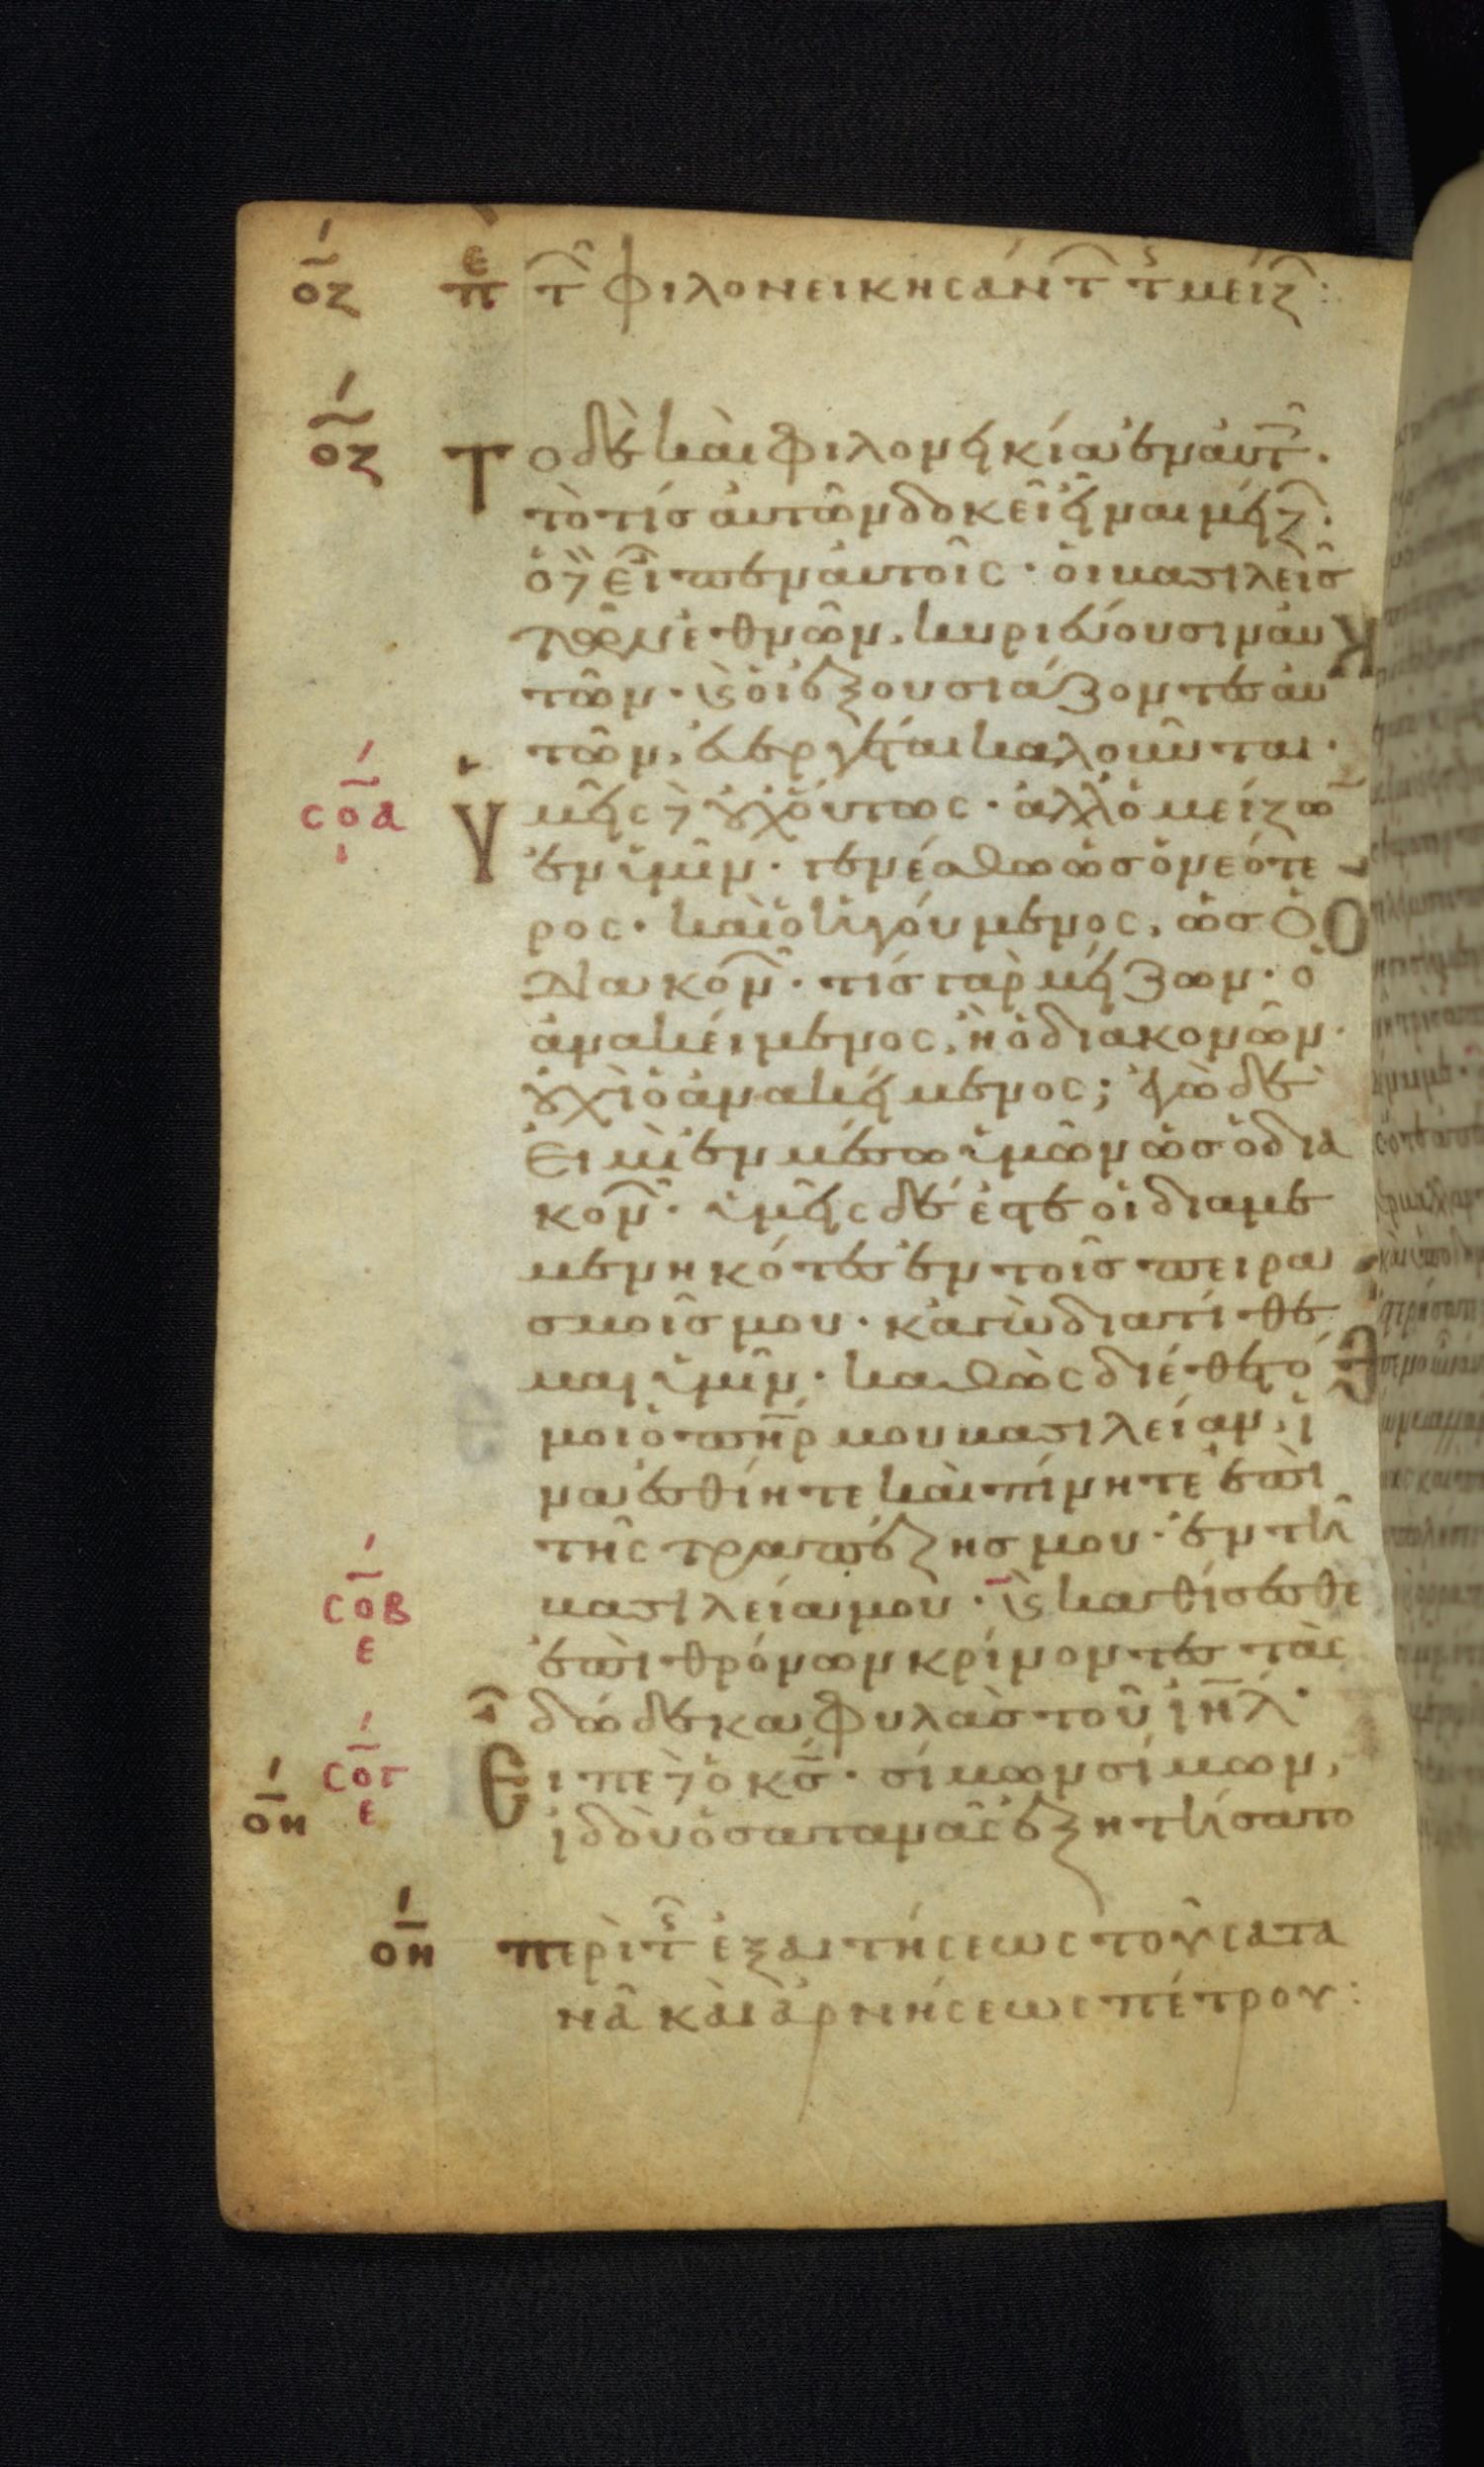 οζ π̅ε τ̑ φιλονεικησάντ̑ τ̑ μείζ̑ :
οζ Το δὲ καὶ φιλονεικία ἐν αὐτ̑.
τὸ τίσ αὐτῶν δοκεῖ εἶναι μείζ̑.
ὁ δὲ εἶπεν αὐτοῖς· οἱ βασιλεῖσ
τῶν ἐθνῶν, κυριεύουσιν αὐ
τῶν· ϗ οἱ ἐξουσιάζοντεσ αὐ
τῶν, εὐεργέται καλοῦνται·
σοα ι Ὑμεῖς δὲ οὐχ οὕτως· ἀλλ' ὁ μείζω̅
ἐν ὑμῖν· γενέσθω ὡσ ὁ νεότε
ρος· καὶ ὁ ἡγούμενος, ὡσ ὁ
διακον̑· τίς γὰρ μείζων· ὁ
ἀνακείμενος, ἢ ὁ διακονῶν·
οὐχὶ ὁ ἀνακείμενος; ἐγὼ δὲ
εἰμὶ ἐν μέσω ὑμῶν ὡσ ὁ δια
κον̑· ὑμεῖς δέ ἐστε οἱ διαμε
μενηκότεσ ἐν τοῖσ πειρα
σμοῖσ μου· κἀγὼ διατίθε
μαι ὑμῖν· καθὼς διέθετό
μοι ὁ π̅η̅ρ̅ μου βασιλείαν, ἵ
να ἐσθίητε καὶ πίνητε ἐπὶ
τῆς τραπέζησ μου· ἐν τῆ
σοβ ε βασιλεία μου· ϗ καθίσεσθε
ἐπὶ θρόνων κρίνοντεσ τὰς
δώδεκα φυλὰσ τοῦ ι̅η̅λ̅·
οη σογ ε Εἶπε δὲ ὁ κ̅σ̅· σίμων σίμων,
ἰδοὺ ὁ σατανᾶς ἐξητήσατο
οη περὶ τ̑ ἐξαιτήσεως τοῦ σατα
νᾶ καὶ ἀρνήσεως πέτρου :